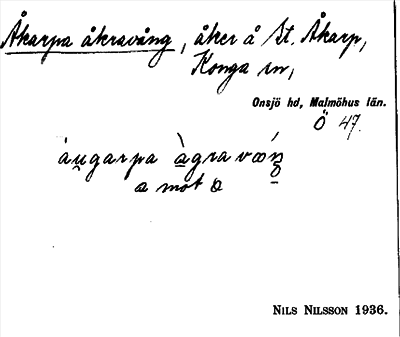 Åkarpa åkravång, åker å St. Åkarp,
Konga sn,
Onsjö hd, Malmöhus län.
Ö 47.
àu̯garpa àgra vǿŋ
a mot ɑ
NILS NILSSON 1936.